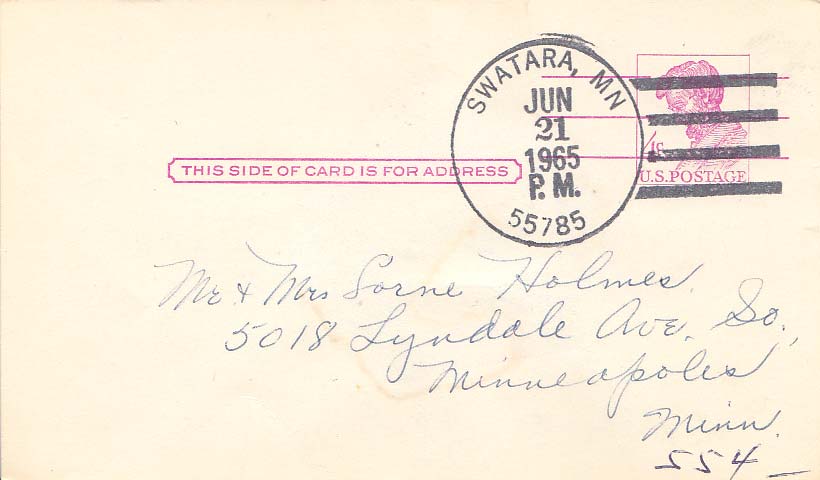 SWATARA, MN
JUN
21
1965
P.M.
55785
U.S.POSTAGE
THIS SIDE OF CARD IS FOR ADDRESS
Mr & Mrs Lorne Holmes
5018 Lyndale Ave. So.,
Minneapolis
Minn.
554